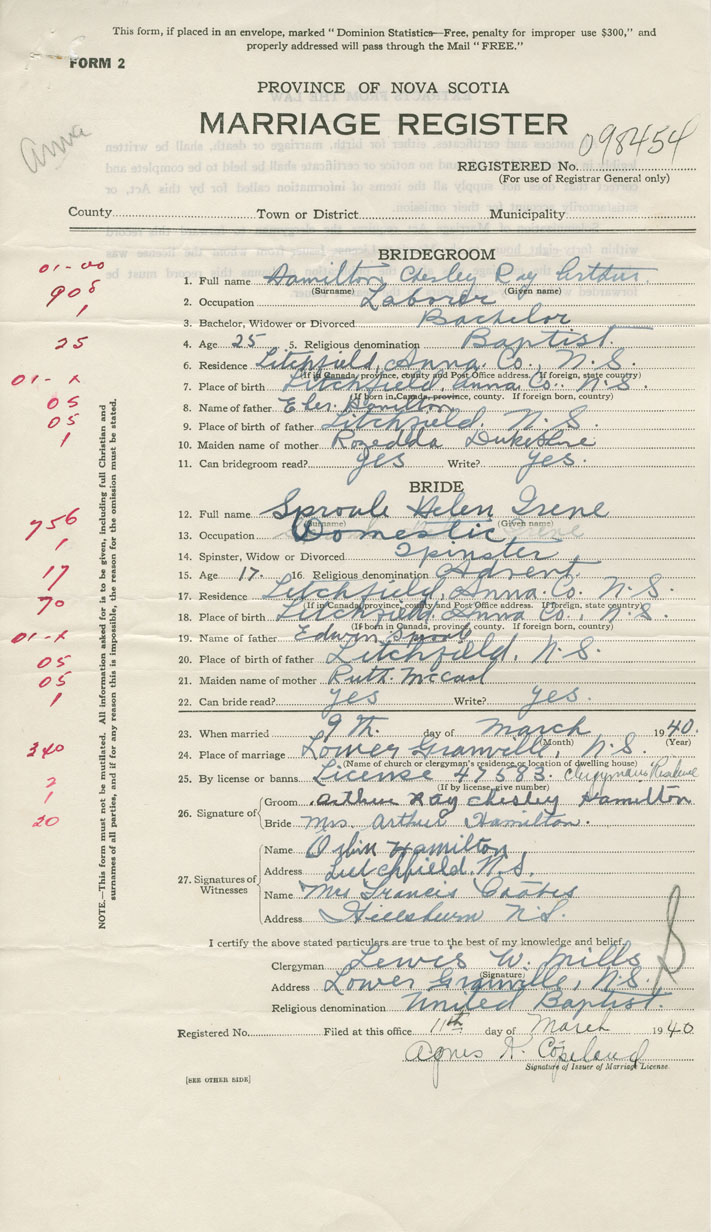 This form, if placed in an envelope, marked "Dominion Statistics—Free, penalty for improper use $300," and
properly addressed will pass through the Mail "FREE."
FORM 2
PROVINCE OF NOVA SCOTIA
MARRIAGE REGISTER
Anna
REGISTERED No. 098454
(For use of Registrar General only)
County Town or District Municipality
BRIDEGROOM
01-00
1. Full name Hamilton Chesley Ray Arthur
(Surname) (Given name)
908
2. Occupation Laborer
1
3. Bachelor, Widower or Divorced Bachelor
25
4. Age 25 5. Religious denomination Baptist.
6. Residence Litchfield, Anna. Co., N.S.
(If in Canada, province, county and Post Office address. If foreign, state country)
01-X
7. Place of birth Litchfield, Anna Co. N.S.
(If born in Canada, province, county. If foreign born, country)
05
8. Name of father Eber Hamilton
05
9. Place of birth of father Litchfield. N.S.
1
10. Maiden name of mother Rozedda Dukeshire
11. Can bridegroom read? yes Write? yes.
BRIDE
12. Full name Sproule Helen Irene
(Surname) (Given name)
756
13. Occupation Domestic
1
14. Spinster, Widow or Divorced Spinster
17
15. Age 17. 16. Religious denomination Advent.
17. Residence Litchfield, Anna. Co. N.S.
(If in Canada, province, county and Post Office address. If foreign, state country)
70
18. Place of birth Litchfield Anna Co., N.S.
(If born in Canada, province, county. If foreign born, country)
01-X
19. Name of father Edwin Sproule
05
20. Place of birth of father Litchfield, N.S.
05
21. Maiden name of mother Ruth McCaul
1
22. Can bride read? yes Write? yes.
23. When married 9th. day of March 1940.
(Month) (Year)
340
24. Place of marriage Lower Granville, N.S.
(Name of church or clergyman's residence or location of dwelling house)
2
25. By license or banns. License 47583. Clergyman's Residence
(If by license, give number)
1
26. Signature of Groom Arthur Ray Chesley Hamilton
20
Bride Mrs. Arthur Hamilton.
27. Signatures of Witnesses
Name Orbin Hamilton
Address Litchfield. N.S.
Name Mrs Francis Coates
Address Hillsburn N.S.
NOTE.—This form must not be mutilated. All information asked for is to be given, including full Christian and
surnames of all parties, and if for any reason this is impossible, the reason for the omission must be stated.
I certify the above stated particulars are true to the best of my knowledge and belief.
Clergyman Lewis W. Mills
(Signature)
Address Lower Granville, N.S.
Religious denomination United Baptist.
Registered No. Filed at this office 11th day of March 1940
Agnes K. Copeland
Signature of Issuer of Marriage License.
[SEE OTHER SIDE]